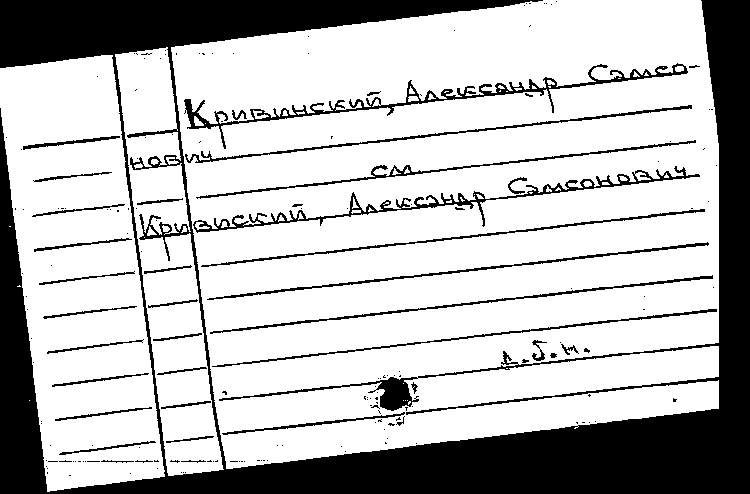 Кривинский, Александр Самсо-
нович
см.
Кривиский, Александр Самсонович
л.б.н.